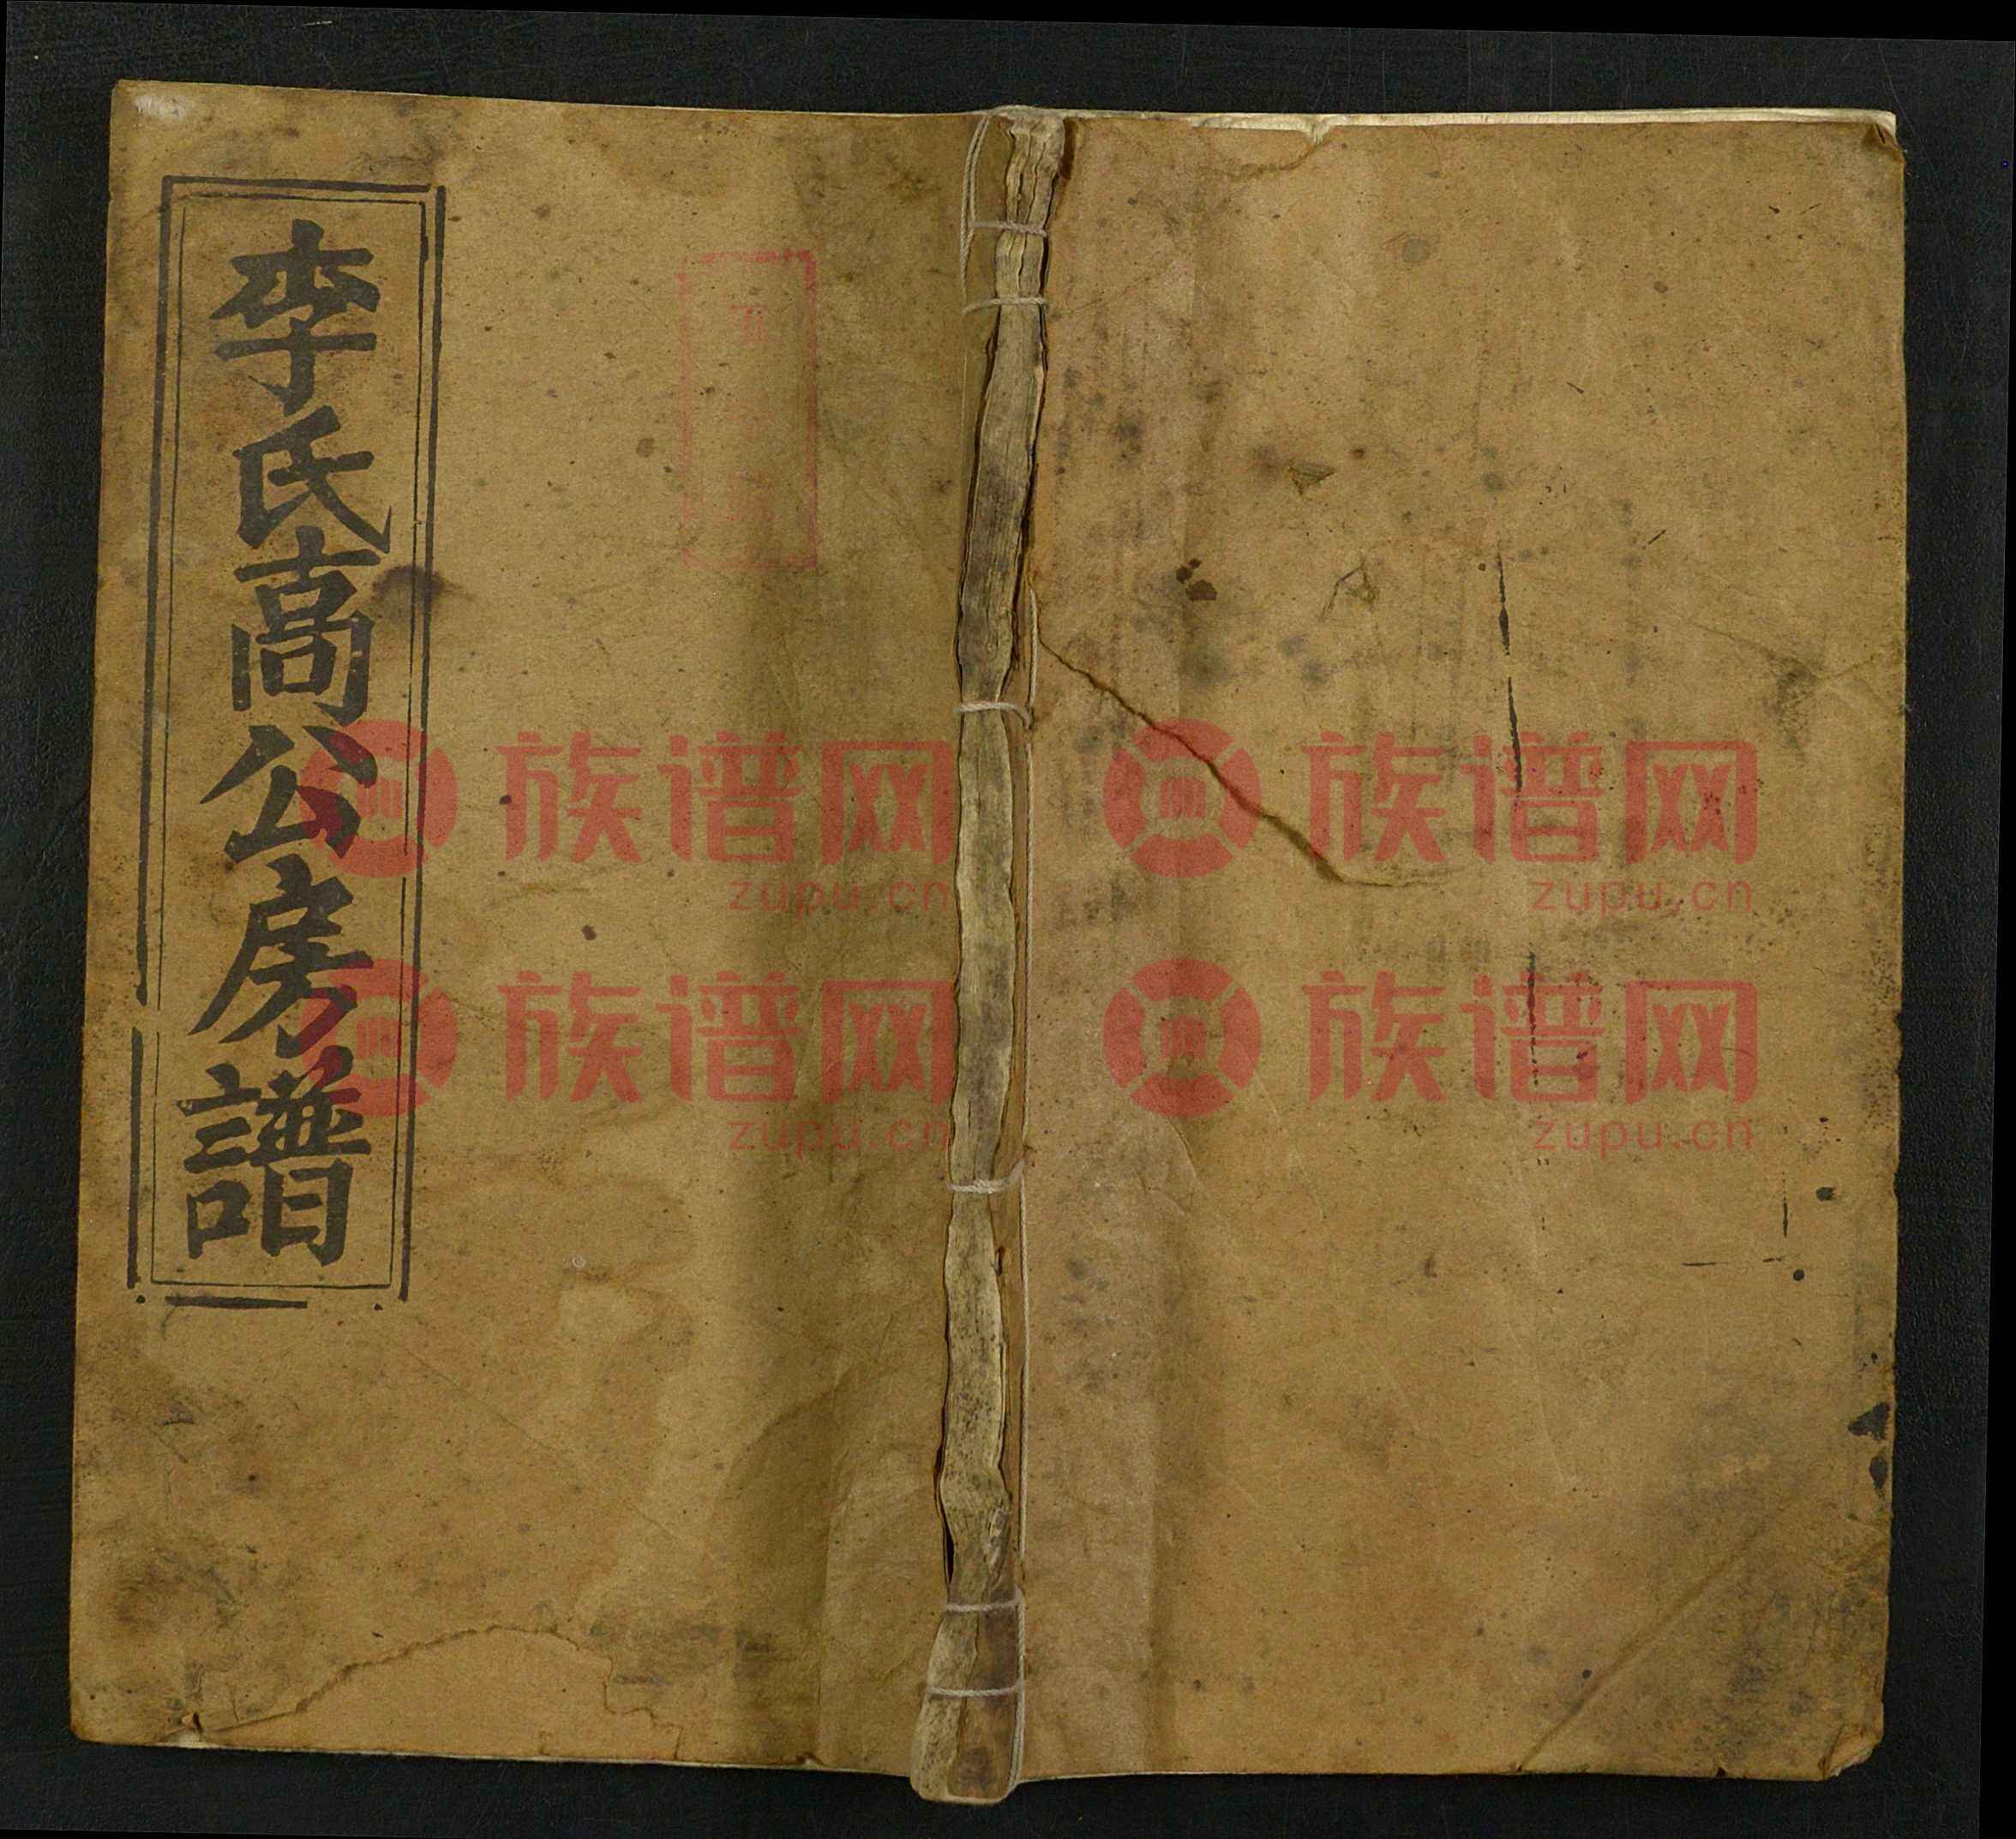 李氏高公房譜
族谱网 族谱网
zupu.cn zupu.cn
族谱网 族谱网
zupu.cn zupu.cn